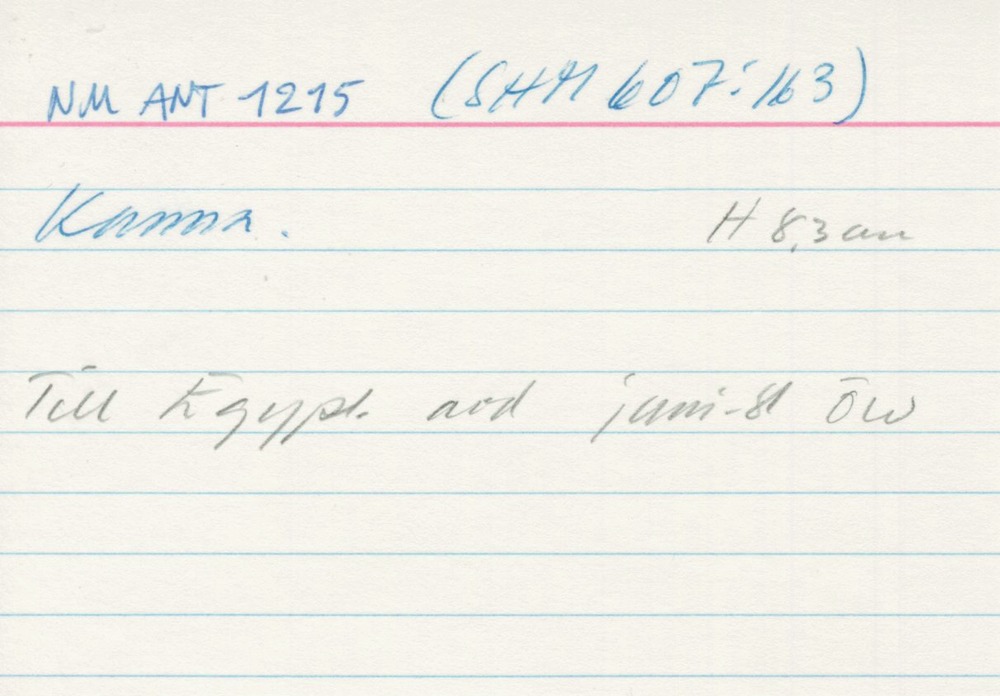 NM ANT 1215 (SHM 607:163)
Kanna. H 8,3 cm
Till Egypt. avd juni-81 ÖW